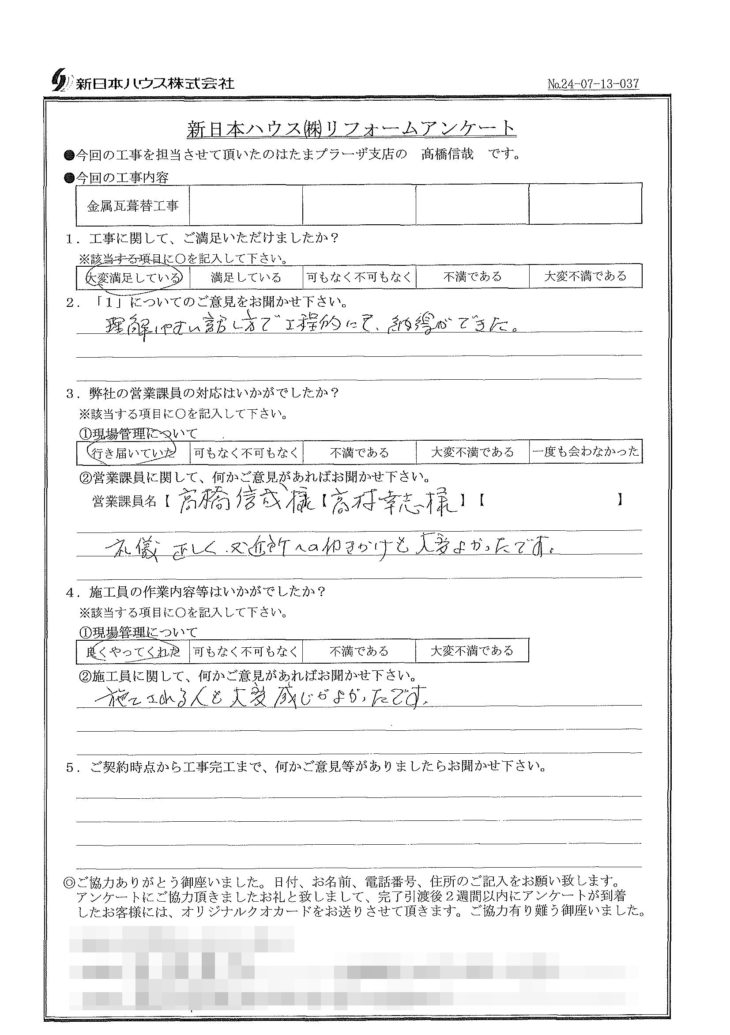 新日本ハウス株式会社
No.24-07-13-037
新日本ハウス㈱リフォームアンケート
●今回の工事を担当させて頂いたのはたまプラーザ支店の 髙橋信哉 です。
●今回の工事内容
金属瓦葺替工事
1．工事に関して、ご満足いただけましたか？
※該当する項目に○を記入して下さい。
大変満足している 満足している 可もなく不可もなく 不満である 大変不満である
2．「1」についてのご意見をお聞かせ下さい。
理解しやすい話し方で工程的にも、納得ができた。
3．弊社の営業課員の対応はいかがでしたか？
※該当する項目に○を記入して下さい。
①現場管理について
行き届いていた 可もなく不可もなく 不満である 大変不満である 一度も会わなかった
②営業課員に関して、何かご意見があればお聞かせ下さい。
営業課員名【高橋信哉様【高村幸志様】【 】
礼儀正しく、又近所への声かけも大変よかったです。
4．施工員の作業内容等はいかがでしたか？
※該当する項目に○を記入して下さい。
①現場管理について
良くやってくれた 可もなく不可もなく 不満である 大変不満である
②施工員に関して、何かご意見があればお聞かせ下さい。
施工される人も大変感じがよかったです。
5．ご契約時点から工事完工まで、何かご意見等がありましたらお聞かせ下さい。
◎ご協力ありがとう御座いました。日付、お名前、電話番号、住所のご記入をお願い致します。
アンケートにご協力頂きましたお礼と致しまして、完了引渡後２週間以内にアンケートが到着
したお客様には、オリジナルクオカードをお送りさせて頂きます。ご協力有り難う御座いました。